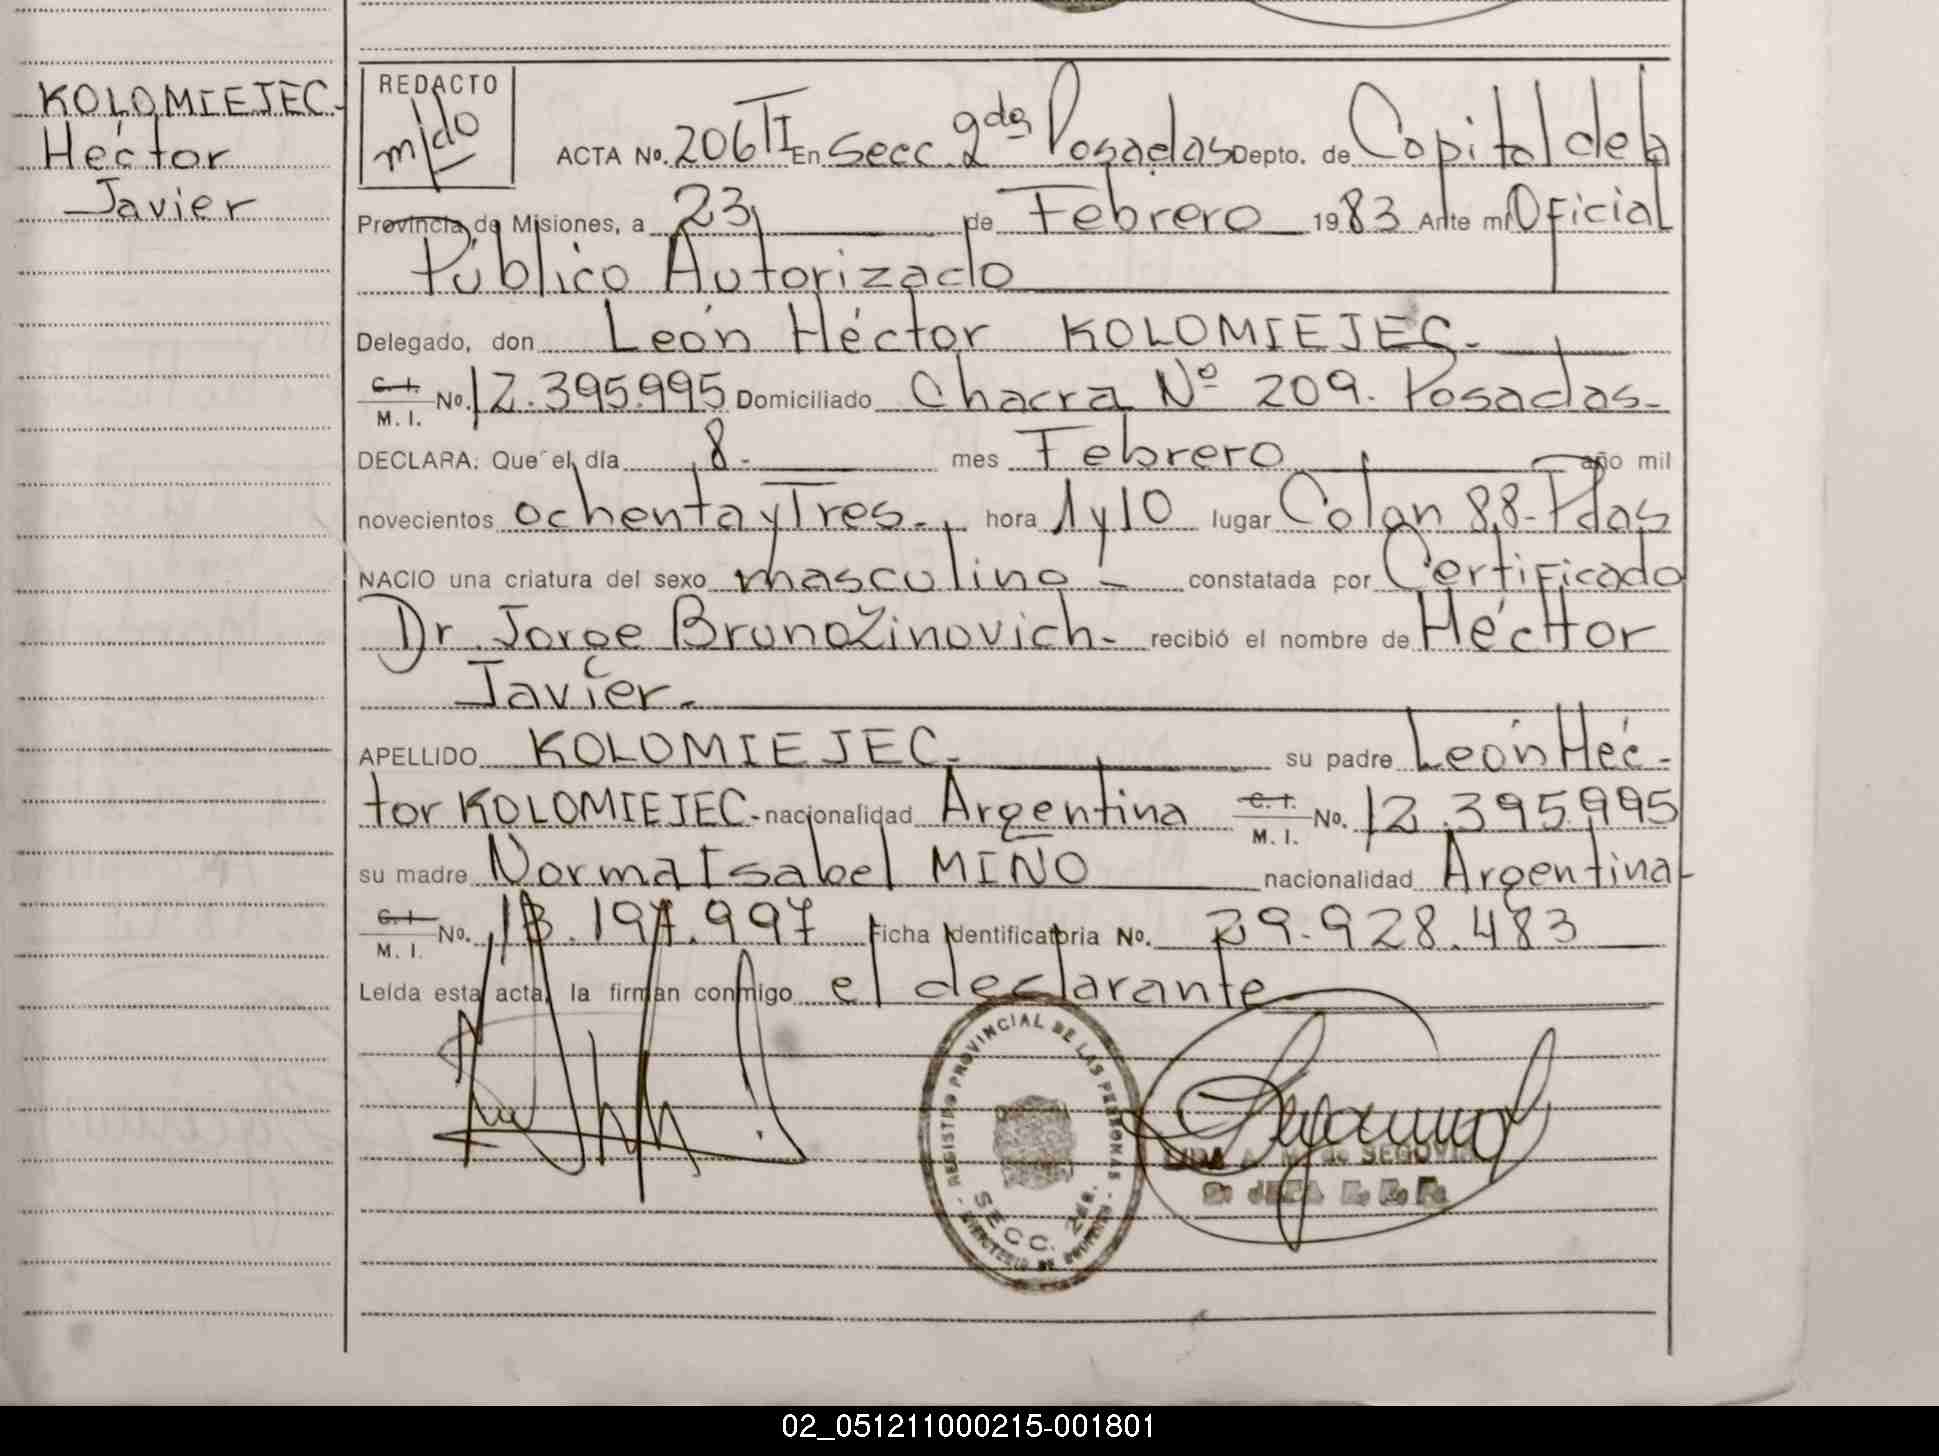 KOLOMIEJEC-
Héctor
Javier
REDACTO
ACTA No. 206 TI En Secc. 2da Posadas Depto. de Capital de la
Provincia de Misiones, a 23 de Febrero 1983 Ante mí Oficial
Público Autorizado
Delegado, don León Héctor KOLOMIEJEC-
C. I.
M. I. No. 12.395.995 Domiciliado Chacra Nº 209. Posadas-
DECLARA: Que el día 8- mes Febrero año mil
novecientos ochenta y Tres- hora 1 y 10 lugar Colon 88- Pdas
NACIO una criatura del sexo masculino- constatada por Certificado
Dr. Jorge Bruno Zinovich- recibió el nombre de Héctor
Javier-
APELLIDO KOLOMIEJEC- su padre León Héc-
tor KOLOMIEJEC- nacionalidad Argentina C. I.
M. I. No. 12.395.995
su madre Norma Isabel MIÑO nacionalidad Argentina-
C. I.
M. I. No. 13.197.997 Ficha Identificatoria No. 29.928.483
Leída esta acta, la firman conmigo el declarante
REGISTRO PROVINCIAL DE LAS PERSONAS
SECC. 2da.
MINISTERIO DE GOBIERNO
A. M. de SEGOVIA
JEFA
02_051211000215-001801